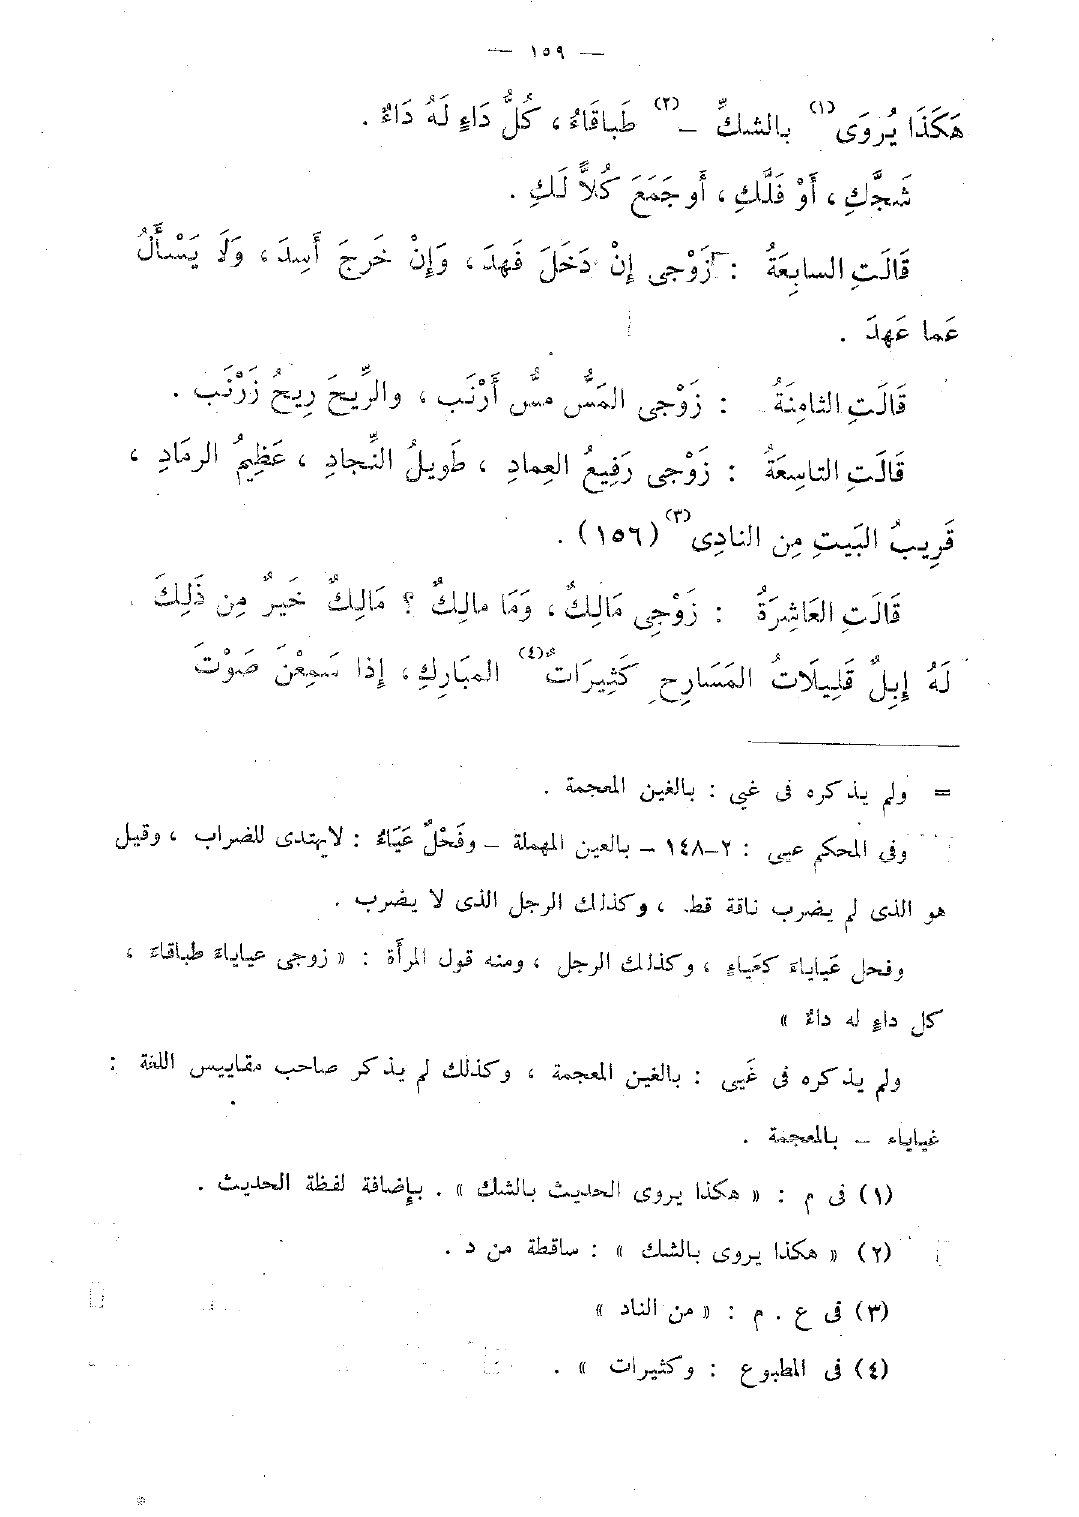 — ١٥٩ —
هَكَذَا يُروَى(١) بالشكِّ –(٢) طَباقَاءُ ، كُلُّ دَاءٍ لَهُ دَاءٌ .
شَجَّكِ ، أَوْ فَلَّكِ ، أَو جَمَعَ كُلاًّ لَكِ .
قَالَتِ السابِعَةُ : زَوْجى إِنْ دَخَلَ فَهِدَ ، وَإِنْ خَرجَ أَسِدَ ، وَلَا يَسْأَلُ
عَما عَهِدَ .
قَالَتِ الثامِنَةُ : زَوْجى المَسُّ مسُّ أَرْنَب ، والرِّيحَ رِيحُ زَرْنَب .
قَالَتِ التاسِعَةُ : زَوْجى رَفِيعُ العِمادِ ، طَوِيلُ النِّجادِ ، عَظِيمُ الرمَادِ ،
قَرِيبُ البَيتِ مِن النادِى(٣) (١٥٦) .
قَالَتِ العَاشِرَةُ : زَوْجِى مَالِكٌ ، وَمَا مالِكٌ ؟ مَالِكٌ خَيرٌ مِن ذَلِكَ .
لَهُ إِبِلٌ قَلِيلَاتُ المَسَارِحِ كَثِيرَاتُ(٤) المبَارِكِ ، إِذا سَمِعْنَ صَوْتَ
= ولم يذكره فى غيى : بالغين المعجمة .
وفى المحكم عيى : ٢–١٤٨ – بالعين المهملة – وفَحْلٌ عَيَاءُ : لايهتدى للضراب ، وقيل
هو الذى لم يضرب ناقة قط ، وكذلك الرجل الذى لا يضرب .
وفحل عَياياءَ كعَياءٍ ، وكذلك الرجل ، ومنه قول المرأة : « زوجى عياياء طباقاء ،
كل داءٍ له داءٌ »
ولم يذكره فى غَيى : بالغين المعجمة ، وكذلك لم يذكر صاحب مقاييس اللغة :
غياياء – بالمعجمة .
(١) فى م : « هكذا يروى الحديث بالشك » . بإضافة لفظة الحديث .
(٢) « هكذا يروى بالشك » : ساقطة من د .
(٣) فى ع . م : « من الناد »
(٤) فى المطبوع : وكثيرات » .